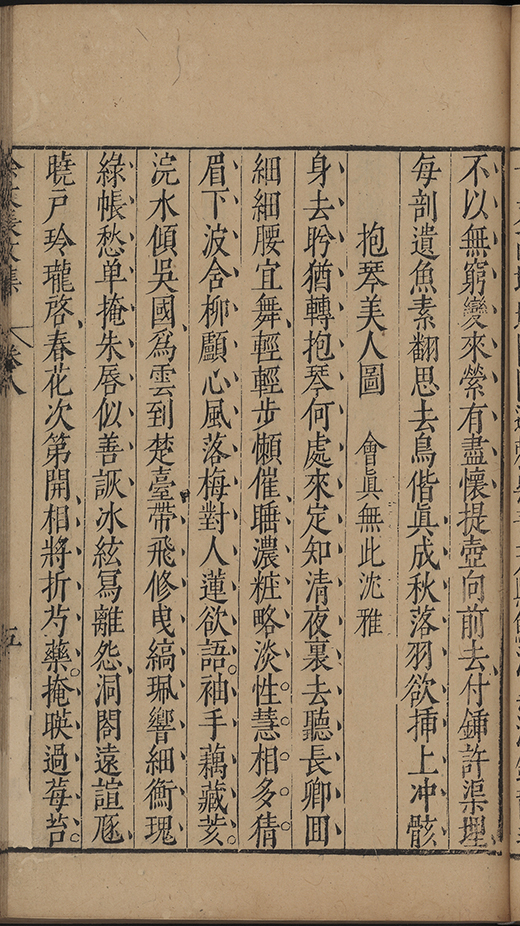 不以無窮變來縈有盡懷提壺向前去付鍤許渠埋
每剖遺魚素翻思去鳥偕眞成秋落羽欲揷上冲骸
抱琴美人圖　會眞無此沈雅
身去盻猶轉抱琴何處來定知清夜裏去聽長卿囘
細細腰宜舞輕輕步懶催䐉濃粧略淡性慧相多猜
眉下波含柳顱心風落梅對人蓮欲語袖手藕藏荄
浣水傾吳國爲雲到楚臺帶飛修曳縞珮響細衝瑰
綠帳愁单掩朱唇似善詼冰絃冩離怨洞閣遠諠豗
曉戸玲瓏啓春花次第開相將折芍藥掩暎過莓苔
徐文長文集　卷八　五